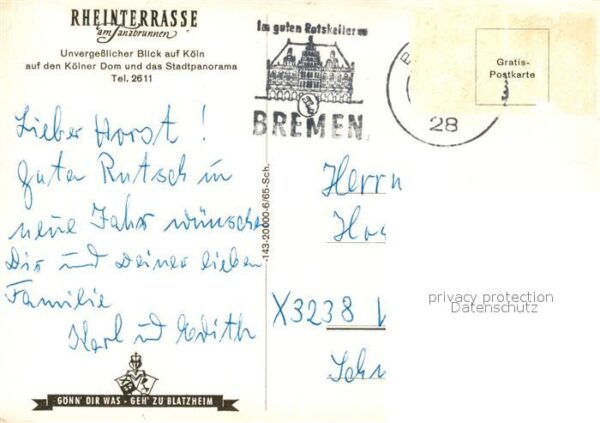 RHEINTERRASSE
am Tanzbrunnen
Unvergeßlicher Blick auf Köln
auf den Kölner Dom und das Stadtpanorama
Tel. 2611
Im guten Ratskeller zu
BREMEN
28
Gratis-
Postkarte
Lieber Horst !
guten Rutsch in
neue Jahr wünschen
Dir und Deiner lieben
Familie
Karl und Edith
-143-20000-6/65-Sch.
Herrn
Ho
X3238
privacy protection
Datenschutz
GÖNN' DIR WAS - GEH' ZU BLATZHEIM